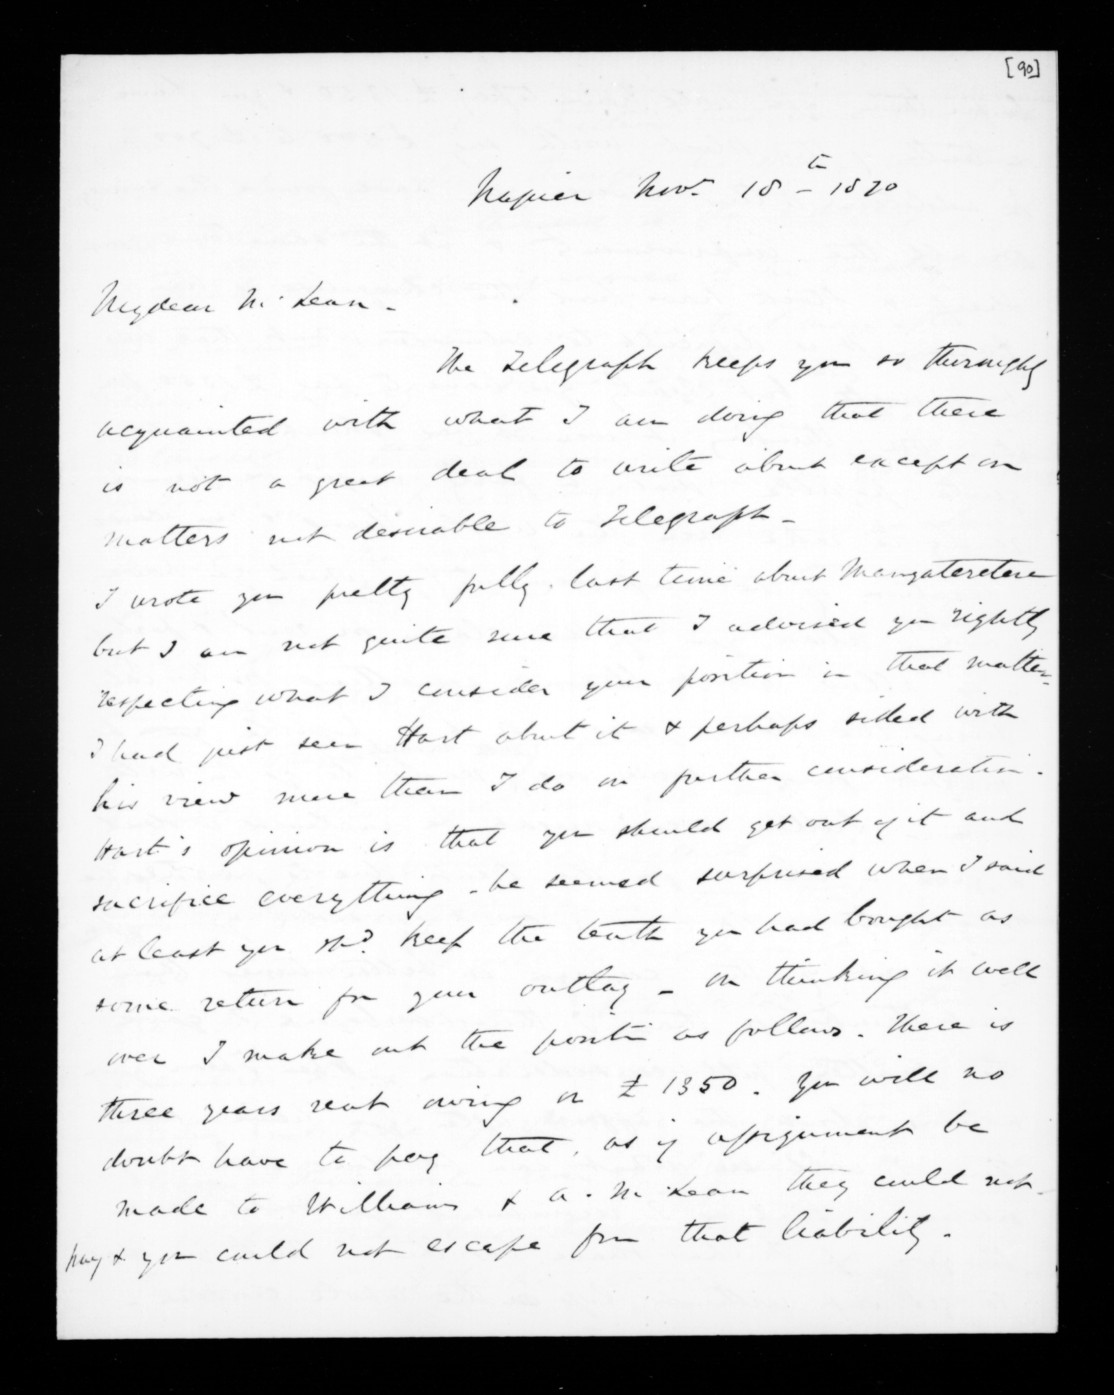 [90]
Napier Novr. 18th 1870
My dear McLean -
The Telegraph keeps you so thoroughly
acquainted with what I am doing that there
is not a great deal to write about except on
matters not desirable to Telegraph -
I wrote you pretty fully last time about Mangateretere
but I am not quite sure that I advised you rightly
respecting what I consider your position in that matter.
I had just seen Hart about it & perhaps sided with
his view more than I do on further consideration.
Hart's opinion is that you should get out of it and
sacrifice everything - he seemed surprised when I said
at least you shd. keep the tenth you had bought as
some return for your outlay - On thinking it well
over I make out the positn as follows. There is
three years rent owing or £1350. You will no
doubt have to pay that, as if assignment be
made to Williams & A. McLean they could not
pay & you could not escape from that liability.